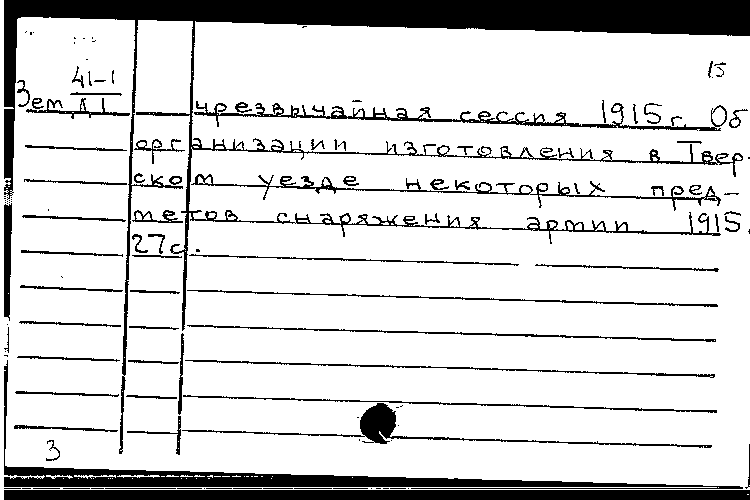 15
41-1
Зем Д1 чрезвычайная сессия 1915 г. Об
организации изготовления в Твер-
ском уезде некоторых пред-
метов снаряжения армии. 1915.
27с.
3